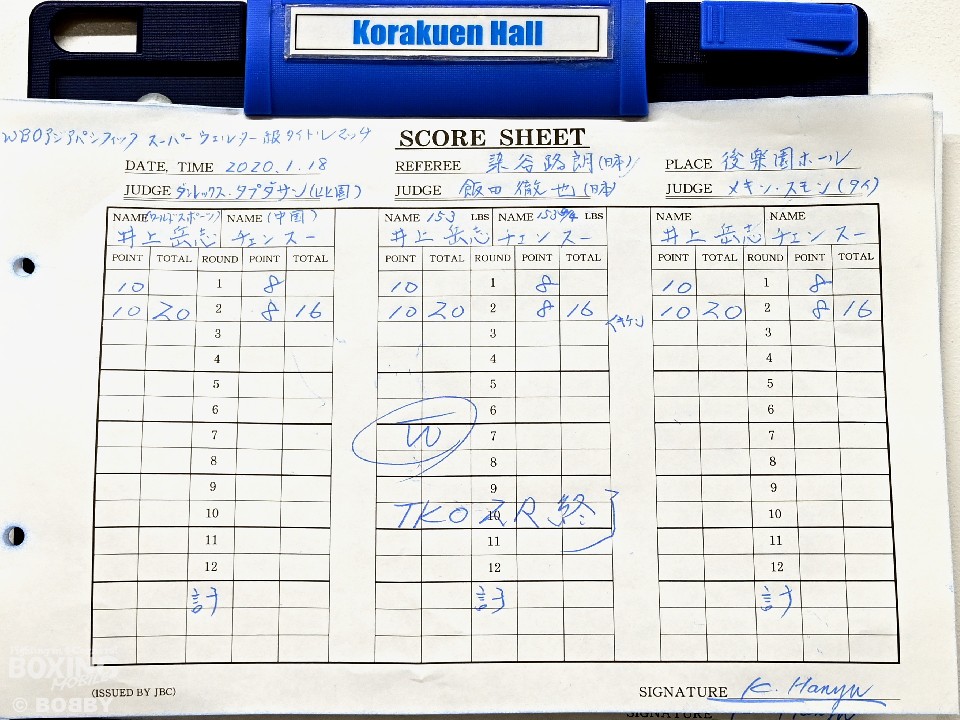 Korakuen Hall
WBOアジアパシフィック スーパーウェルター級タイトルマッチ
SCORE SHEET
DATE, TIME 2020.1.18 REFEREE 染谷路朗(日本) PLACE 後楽園ホール
JUDGE ダンレックス・タプダサン(比国) JUDGE 飯田徹也(日本) JUDGE メキン・スモン(タイ)
NAME(ワールドスポーツ) NAME(中国) NAME 153 LBS NAME 153 3/4 LBS NAME NAME
井上岳志 チェンスー 井上岳志 チェンスー 井上岳志 チェンスー
POINT TOTAL ROUND POINT TOTAL POINT TOTAL ROUND POINT TOTAL POINT TOTAL ROUND POINT TOTAL
10 1 8 10 1 8 10 1 8
10 20 2 8 16 10 20 2 8 16 (キケン) 10 20 2 8 16
3 3 3
4 4 4
5 5 5
6 6 6
7 W 7 7
8 8 8
9 9 9
10 TKO 2R終 10 10
11 11 11
12 12 12
計 計 計
(ISSUED BY JBC) SIGNATURE K. Hanyu
BOXING
MOBILE
© BOBBY
SIGNATURE